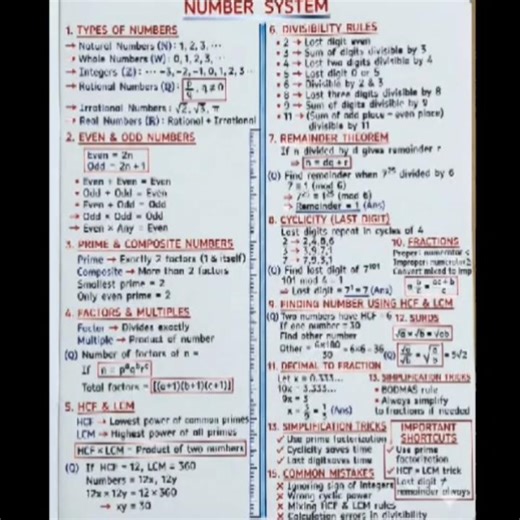 NUMBER SYSTEM
1. TYPES OF NUMBERS
→ Natural Numbers (N): 1, 2, 3, ...
• Whole Numbers (W): 0, 1, 2, 3, ...
→ Integers (Z): ... -3, -2, -1, 0, 1, 2, 3 ...
→ Rational Numbers (Q): p/q, q≠0
→ Irrational Numbers: √2, √3, π
• Real Numbers (R): Rational + Irrational
2. EVEN & ODD NUMBERS
Even = 2n
Odd = 2n+1
• Even + Even = Even
• Odd + Odd = Even
• Even + Odd = Odd
→ Odd × Odd = Odd
→ Even × Any = Even
3. PRIME & COMPOSITE NUMBERS
Prime → Exactly 2 factors (1 & itself)
Composite → More than 2 factors
Smallest prime = 2
Only even prime = 2
4. FACTORS & MULTIPLES
Factor → Divides exactly
Multiple → Product of number
(Q) Number of factors of n =
If
Total factors = [(a+1)(b+1)(c+1)]
5. HCF & LCM
HCF → Lowest power of common primes
LCM → Highest power of all primes
HCF × LCM = Product of two numbers
(Q) If HCF = 12, LCM = 360
Numbers = 12x, 12y
12x × 12y = 12 × 360
→ xy = 30
6. DIVISIBILITY RULES
• 2 → Last digit even
• 3 → Sum of digits divisible by 3
• 4 → Last two digits divisible by 4
• 5 → Last digit 0 or 5
• 6 → Divisible by 2 & 3
• 8 → Last three digits divisible by 8
• 9 → Sum of digits divisible by 9
• 11 → (Sum of odd place – even place)
divisible by 11
7. REMAINDER THEOREM
If n divided by d gives remainder r
→ n = dq + r
(Q) Find remainder when divided by 6
7 ≡ 1 (mod 6)
(mod 6)
→ Remainder = 1 (Ans)
8. CYCLICITY (LAST DIGIT)
Last digits repeat in cycles of 4
2 → 2,4,8,6
7 → 7,9,3,1
(Q) Find last digit of 7¹⁰¹
101 mod 4 = 1
→ Last digit = 7¹ = 7 (Ans)
10. FRACTIONS
Proper: numerator <
Improper: numerator
Convert mixed to imp
9. FINDING NUMBER USING HCF & LCM
(Q) Two numbers have HCF = 6
If one number = 30
Find other number
Other = 6×180/30 = 6×6 = 36
12. SURDS
√a × √b = √ab
(Q) = 5√2
11. DECIMAL TO FRACTION
Let x = 0.333...
10x = 3.333...
9x = 3
(Ans)
13. SIMPLIFICATION TRICKS
• BODMAS rule
• Always simplify
to fractions if needed
13. SIMPLIFICATION TRICKS
✓ Use prime factorization
✓ Cyclicity saves time
✓ Last digit saves time
IMPORTANT
SHORTCUTS
✓ Use prime
factorization
✓ HCF × LCM trick
Last digit
remainder always
15. COMMON MISTAKES
✗ Ignoring sign of integers
✗ Wrong cyclic power
✗ Mixing HCF & LCM rules
✗ Calculation errors in divisibility